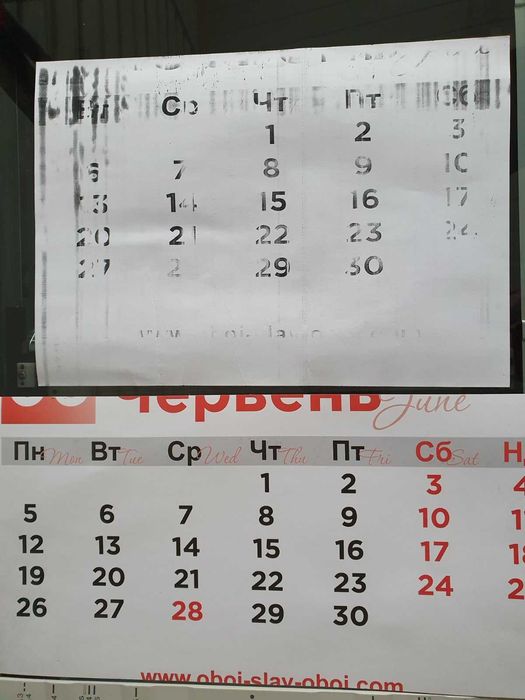 Ср Чт Пт Сб
1 2 3
6 7 8 9 10
13 14 15 16 17
20 21 22 23 24
27 2 29 30
Червень June
Пн Mon Вт Tue Ср Wed Чт Thu Пт Fri Сб Sat Н
1 2 3 4
5 6 7 8 9 10 1
12 13 14 15 16 17 18
19 20 21 22 23 24 2
26 27 28 29 30
www.oboi-slav-oboi.com